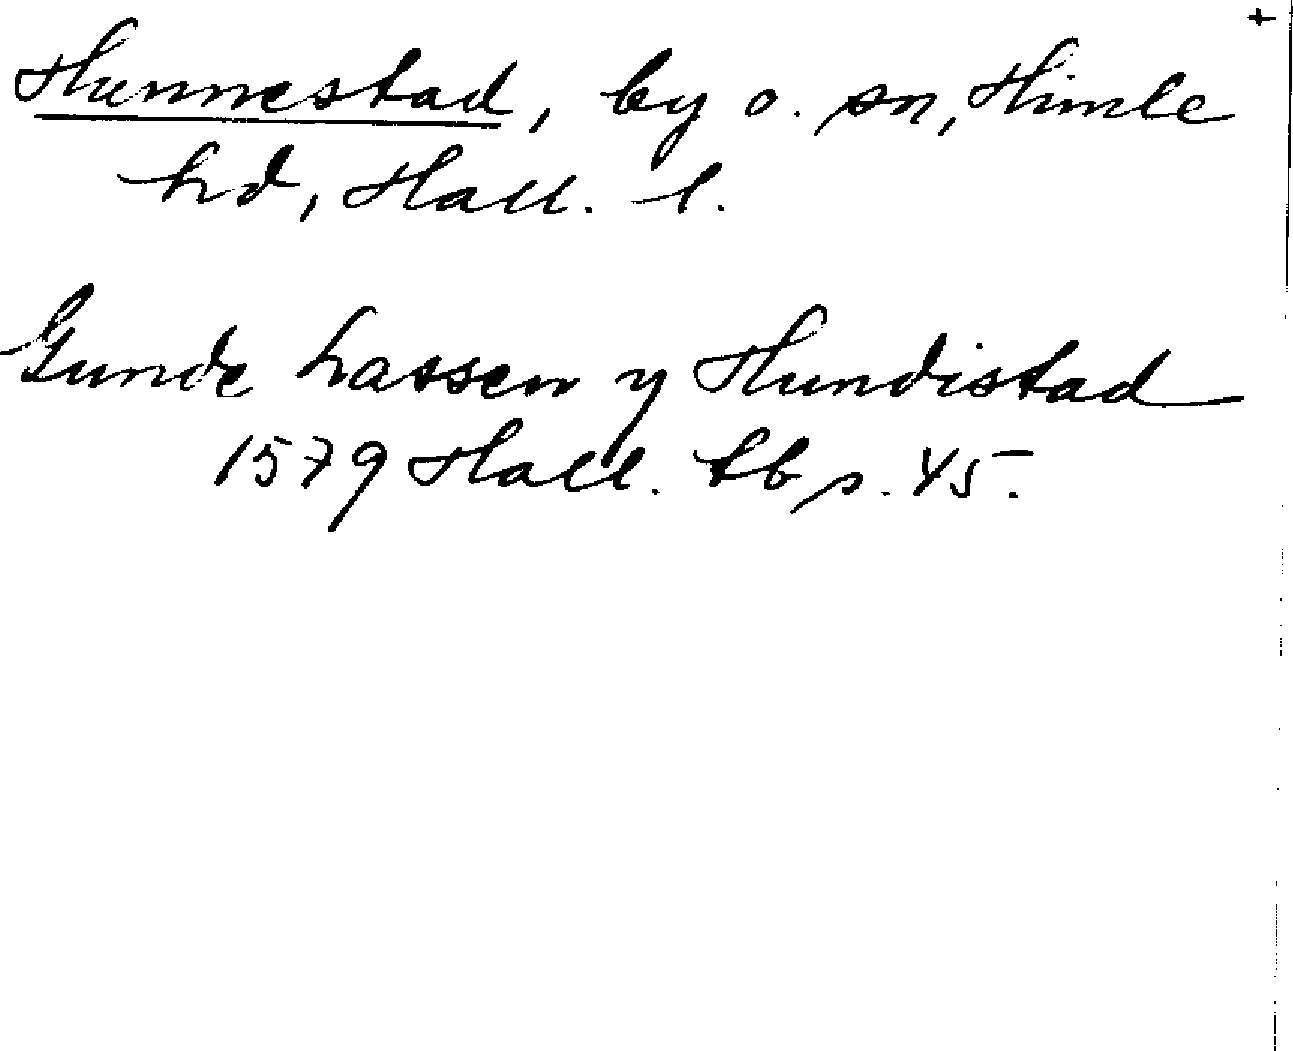 +
Hunnestad, by o. sn, Himle
hd, Hall. l.
Gunde Lassen y Hundistad
1579 Hall. tb s. 45.